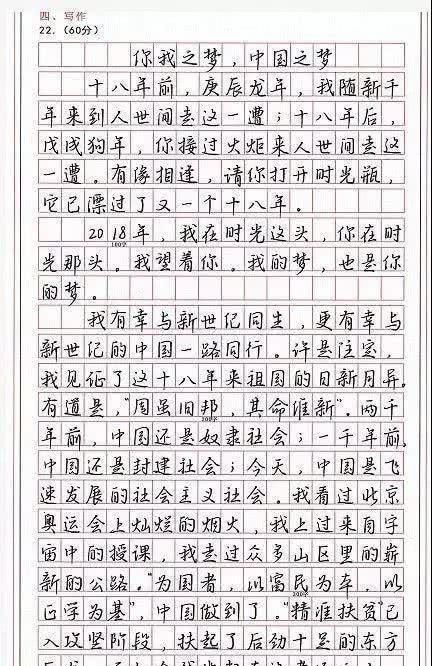 四、写作
22.（60分）
你我之梦，中国之梦
十八年前，庚辰龙年，我随新千
年来到人世间走这一遭；十八年后，
戊戌狗年，你接过火炬来人世间走这
一遭。有缘相逢，请你打开时光瓶，
它已漂过了又一个十八年。
2018年，我在时光这头，你在时
100字
光那头。我望着你。我的梦，也是你
的梦。
我有幸与新世纪同生，更有幸与
新世纪的中国一路同行。许是注定，
我见证了这十八年来祖国的日新月异。
有道是，“周虽旧邦，其命维新”。两千
200字
年前，中国还是奴隶社会；一千年前，
中国还是封建社会；今天，中国是飞
速发展的社会主义社会。我看过北京
奥运会上灿烂的烟火，我上过来自宇
宙中的授课，我走过众多山区里的崭
新的公路。“为国者，以富民为本，以
300字
正学为基”，中国做到了。“精准扶贫”已
入攻坚阶段，扶起了后劲十足的东方